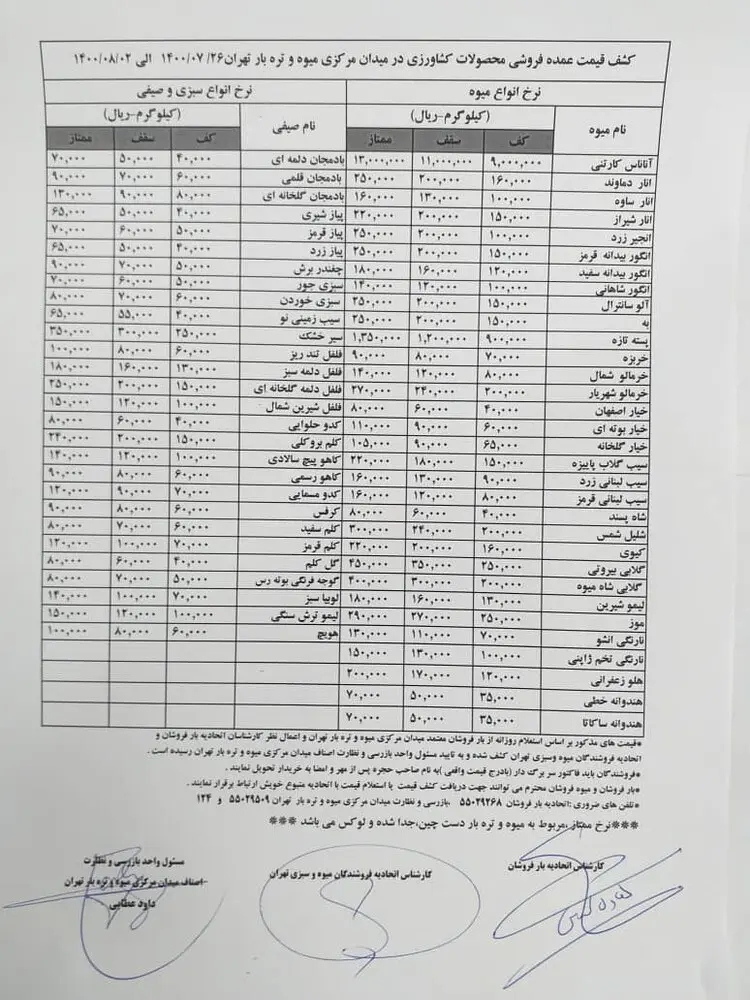 کشف قیمت عمده فروشی محصولات کشاورزی در میدان مرکزی میوه و تره بار تهران ۱۴۰۰/۰۷/۲۶ الی ۱۴۰۰/۰۸/۰۲
نرخ انواع میوه نرخ انواع سبزی و صیفی
نام میوه (کیلوگرم-ریال) نام صیفی (کیلوگرم-ریال)
کف سقف ممتاز کف سقف ممتاز
آناناس کارتنی ۹,۰۰۰,۰۰۰ ۱۱,۰۰۰,۰۰۰ ۱۳,۰۰۰,۰۰۰ بادمجان دلمه ای ۴۰,۰۰۰ ۵۰,۰۰۰ ۷۰,۰۰۰
انار دماوند ۱۶۰,۰۰۰ ۲۰۰,۰۰۰ ۲۵۰,۰۰۰ بادمجان قلمی ۶۰,۰۰۰ ۷۰,۰۰۰ ۹۰,۰۰۰
انار ساوه ۱۰۰,۰۰۰ ۱۳۰,۰۰۰ ۱۶۰,۰۰۰ بادمجان گلخانه ای ۸۰,۰۰۰ ۹۰,۰۰۰ ۱۳۰,۰۰۰
انار شیراز ۱۵۰,۰۰۰ ۲۰۰,۰۰۰ ۲۲۰,۰۰۰ پیاز شیری ۴۰,۰۰۰ ۵۰,۰۰۰ ۶۵,۰۰۰
انجیر زرد ۱۰۰,۰۰۰ ۲۰۰,۰۰۰ ۲۵۰,۰۰۰ پیاز قرمز ۵۰,۰۰۰ ۶۰,۰۰۰ ۷۰,۰۰۰
انگور بیدانه قرمز ۱۵۰,۰۰۰ ۲۰۰,۰۰۰ ۲۵۰,۰۰۰ پیاز زرد ۴۰,۰۰۰ ۵۰,۰۰۰ ۶۵,۰۰۰
انگور بیدانه سفید ۱۲۰,۰۰۰ ۱۶۰,۰۰۰ ۱۸۰,۰۰۰ چغندر برش ۵۰,۰۰۰ ۷۰,۰۰۰ ۹۰,۰۰۰
انگور شاهانی ۱۰۰,۰۰۰ ۱۲۰,۰۰۰ ۱۴۰,۰۰۰ سبزی جور ۵۰,۰۰۰ ۶۰,۰۰۰ ۷۰,۰۰۰
آلو سانترال ۱۵۰,۰۰۰ ۲۰۰,۰۰۰ ۲۵۰,۰۰۰ سبزی خوردن ۶۰,۰۰۰ ۷۰,۰۰۰ ۸۰,۰۰۰
به ۱۵۰,۰۰۰ ۲۰۰,۰۰۰ ۲۵۰,۰۰۰ سیب زمینی نو ۴۰,۰۰۰ ۵۵,۰۰۰ ۶۵,۰۰۰
پسته تازه ۹۰۰,۰۰۰ ۱,۲۰۰,۰۰۰ ۱,۳۵۰,۰۰۰ سیر خشک ۲۵۰,۰۰۰ ۳۰۰,۰۰۰ ۳۵۰,۰۰۰
خربزه ۷۰,۰۰۰ ۸۰,۰۰۰ ۹۰,۰۰۰ فلفل تند ریز ۶۰,۰۰۰ ۸۰,۰۰۰ ۱۰۰,۰۰۰
خرمالو شمال ۸۰,۰۰۰ ۱۲۰,۰۰۰ ۱۴۰,۰۰۰ فلفل دلمه سبز ۱۳۰,۰۰۰ ۱۶۰,۰۰۰ ۱۸۰,۰۰۰
خرمالو شهریار ۲۰۰,۰۰۰ ۲۴۰,۰۰۰ ۲۷۰,۰۰۰ فلفل دلمه گلخانه ای ۱۵۰,۰۰۰ ۲۰۰,۰۰۰ ۲۵۰,۰۰۰
خیار اصفهان ۴۰,۰۰۰ ۶۰,۰۰۰ ۸۰,۰۰۰ فلفل شیرین شمال ۱۰۰,۰۰۰ ۱۲۰,۰۰۰ ۱۵۰,۰۰۰
خیار بوته ای ۶۰,۰۰۰ ۹۰,۰۰۰ ۱۱۰,۰۰۰ کدو حلوایی ۴۰,۰۰۰ ۶۰,۰۰۰ ۸۰,۰۰۰
خیار گلخانه ۶۵,۰۰۰ ۹۰,۰۰۰ ۱۰۵,۰۰۰ کلم بروکلی ۱۵۰,۰۰۰ ۲۰۰,۰۰۰ ۲۴۰,۰۰۰
سیب گلاب پاییزه ۱۵۰,۰۰۰ ۱۸۰,۰۰۰ ۲۲۰,۰۰۰ کاهو پیچ سالادی ۱۰۰,۰۰۰ ۱۲۰,۰۰۰ ۱۴۰,۰۰۰
سیب لبنانی زرد ۹۰,۰۰۰ ۱۳۰,۰۰۰ ۱۶۰,۰۰۰ کاهو رسمی ۶۰,۰۰۰ ۸۰,۰۰۰ ۹۰,۰۰۰
سیب لبنانی قرمز ۸۰,۰۰۰ ۱۲۰,۰۰۰ ۱۶۰,۰۰۰ کدو مسمایی ۷۰,۰۰۰ ۹۰,۰۰۰ ۱۲۰,۰۰۰
شاه پسند ۴۰,۰۰۰ ۶۰,۰۰۰ ۸۰,۰۰۰ کرفس ۶۰,۰۰۰ ۸۰,۰۰۰ ۹۰,۰۰۰
شلیل شمس ۲۰۰,۰۰۰ ۲۴۰,۰۰۰ ۳۰۰,۰۰۰ کلم سفید ۶۰,۰۰۰ ۷۰,۰۰۰ ۸۰,۰۰۰
کیوی ۱۶۰,۰۰۰ ۲۰۰,۰۰۰ ۲۲۰,۰۰۰ کلم قرمز ۷۰,۰۰۰ ۱۰۰,۰۰۰ ۱۲۰,۰۰۰
گلابی بیروتی ۲۵۰,۰۰۰ ۳۵۰,۰۰۰ ۴۵۰,۰۰۰ گل کلم ۴۰,۰۰۰ ۶۰,۰۰۰ ۸۰,۰۰۰
گلابی شاه میوه ۲۰۰,۰۰۰ ۳۰۰,۰۰۰ ۴۰۰,۰۰۰ گوجه فرنگی بوته رس ۵۰,۰۰۰ ۷۰,۰۰۰ ۸۰,۰۰۰
لیمو شیرین ۱۳۰,۰۰۰ ۱۶۰,۰۰۰ ۱۸۰,۰۰۰ لوبیا سبز ۷۰,۰۰۰ ۱۰۰,۰۰۰ ۱۴۰,۰۰۰
موز ۲۵۰,۰۰۰ ۲۷۰,۰۰۰ ۲۹۰,۰۰۰ لیمو ترش سنگی ۱۰۰,۰۰۰ ۱۲۰,۰۰۰ ۱۵۰,۰۰۰
نارنگی انشو ۷۰,۰۰۰ ۱۱۰,۰۰۰ ۱۳۰,۰۰۰ هویج ۶۰,۰۰۰ ۸۰,۰۰۰ ۱۰۰,۰۰۰
نارنگی تخم ژاپنی ۱۰۰,۰۰۰ ۱۳۰,۰۰۰ ۱۵۰,۰۰۰
هلو زعفرانی ۱۲۰,۰۰۰ ۱۷۰,۰۰۰ ۲۰۰,۰۰۰
هندوانه خطی ۳۵,۰۰۰ ۵۰,۰۰۰ ۷۰,۰۰۰
هندوانه ساکاتا ۳۵,۰۰۰ ۵۰,۰۰۰ ۷۰,۰۰۰
*قیمت های مذکور بر اساس استعلام روزانه از بار فروشان معتمد میدان مرکزی میوه و تره بار تهران و اعمال نظر کارشناسان اتحادیه بار فروشان و
اتحادیه فروشندگان میوه وسبزی تهران کشف شده و به تایید مسئول واحد بازرسی و نظارت اصناف میدان مرکزی میوه و تره بار تهران رسیده است .
*فروشندگان باید فاکتور سر برگ دار (بادرج قیمت واقعی )به نام صاحب حجره پس از مهر و امضا به خریدار تحویل نمایند .
*بار فروشان و میوه فروشان محترم می توانند جهت دریافت کشف قیمت یا استعلام قیمت با اتحادیه متبوع خویش ارتباط برقرار نمایند .
*تلفن های ضروری :اتحادیه بار فروشان ۵۵۰۲۹۲۶۸ بازرسی و نظارت میدان مرکزی میوه و تره بار تهران ۵۵۰۲۹۵۰۹ و ۱۲۴
***نرخ ممتاز ,مربوط به میوه و تره بار دست چین,جدا شده و لوکس می باشد ***
کارشناس اتحادیه بار فروشان
کارشناس اتحادیه فروشندگان میوه و سبزی تهران
مسئول واحد بازرسی و نظارت
اصناف میدان مرکزی میوه و تره بار تهران
داود عطایی